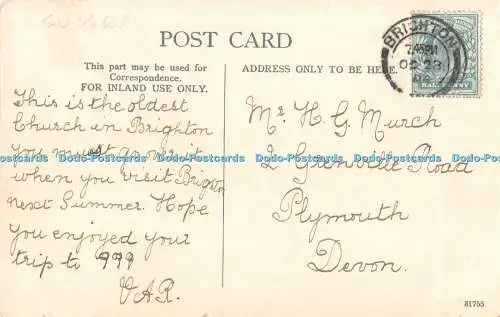 POST CARD
This part may be used for
Correspondence.
FOR INLAND USE ONLY.
ADDRESS ONLY TO BE HERE.
BRIGHTON
7.45PM
OC 23
HALFPENNY
This is the oldest
Church in Brighton
you must go over it
when you visit Brighton
next Summer. Hope
you enjoyed your
trip to ???
V.A.R.
Mr H. G. Murch
2 Grenville Road
Plymouth
Devon.
81755
Dodo-Postcards Dodo-Postcards Dodo-Postcards Dodo-Postcards Dodo-Postcards Dodo-Postcards